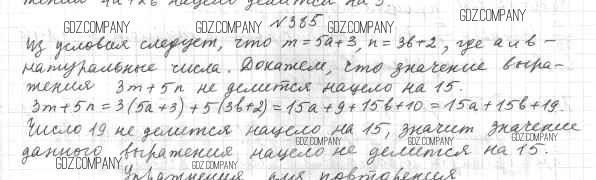 тений 4a+2b нацело делится на 3.
№385
GDZ.COMPANY GDZ.COMPANY GDZ.COMPANY GDZ.COMPANY
Из условия следует, что m=5a+3, n=3b+2, где a и b –
натуральные числа. Докажем, что значение выра-
жения 3m+5n не делится нацело на 15.
3m+5n=3(5a+3)+5(3b+2)=15a+9+15b+10=15a+15b+19.
Число 19 не делится нацело на 15, значит значение
GDZ.COMPANY GDZ.COMPANY GDZ.COMPANY
данного выражения нацело не делится на 15.
GDZ.COMPANY GDZ.COMPANY
Упражнения для повторения